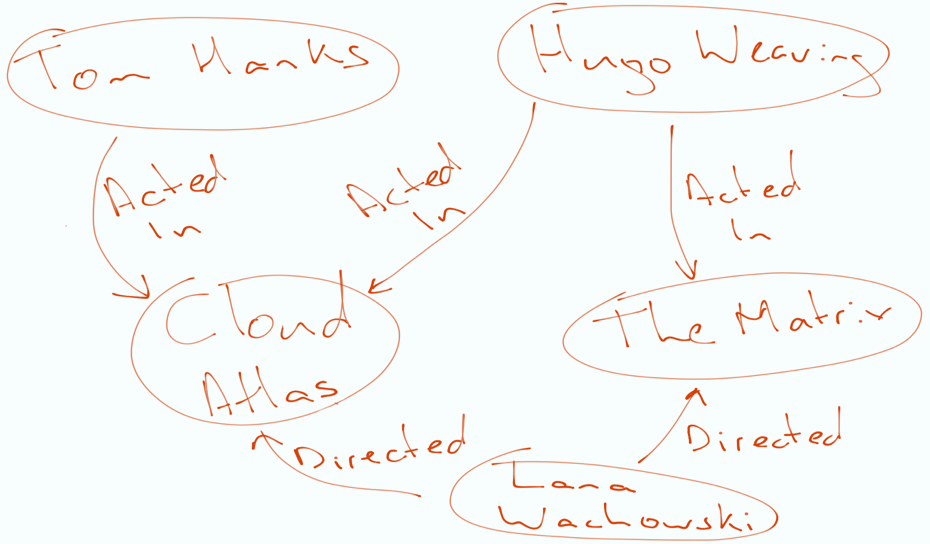 Tom Hanks
Hugo Weaving
Acted
In
Acted
In
Acted
In
Cloud
Atlas
The Matrix
Directed
Directed
Lana
Wachowski